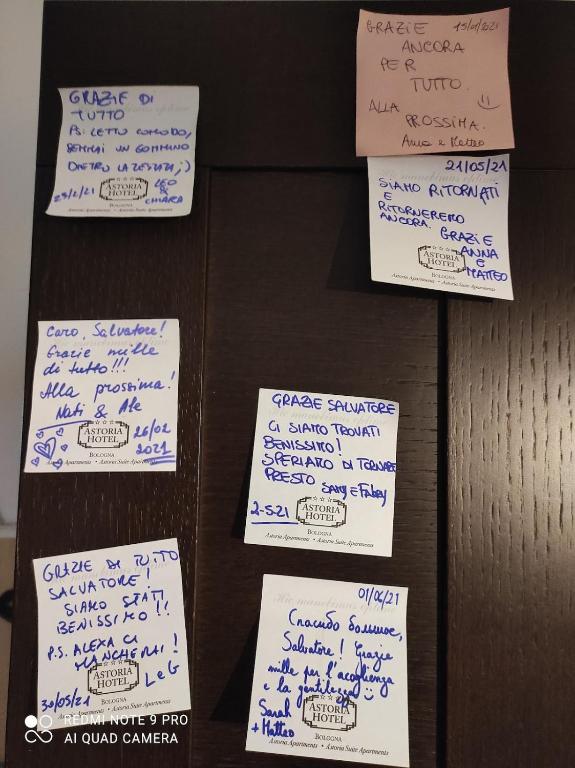 GRAZIE 15/01/2021
ANCORA
PER
TUTTO.
ALLA
PROSSIMA.
Anna e Matteo
21/05/21
SIAMO RITORNATI
E
RITORNEREMO
ANCORA.
GRAZIE
ANNA
E
MATTEO
ASTORIA
HOTEL
BOLOGNA
Astoria Apartments • Astoria Suite Apartments
GRAZIE DI
TUTTO
PS: LETTO COMODO,
SEMMAI UN GOMMINO
DIETRO LA TESTATA ;)
LEO
&
CHIARA
ASTORIA
HOTEL
BOLOGNA
Astoria Apartments • Astoria Suite Apartments
Caro, Salvatore!
Grazie mille
di tutto!!!
Alla prossima!
Nati & Ale
26/02
2021
ASTORIA
HOTEL
BOLOGNA
Astoria Apartments • Astoria Suite Apartments
GRAZIE SALVATORE
CI SIAMO TROVATI
BENISSIMO!
SPERIAMO DI TORNARE
PRESTO
SAMY e FABRY
2-5-21
ASTORIA
HOTEL
BOLOGNA
Astoria Apartments • Astoria Suite Apartments
GRAZIE DI TUTTO
SALVATORE!
SIAMO STATI
BENISSIMO!!
P.S. ALEXA CI
MANCHERAI!
L e G
30/05/21
ASTORIA
HOTEL
BOLOGNA
Astoria Apartments • Astoria Suite Apartments
01/06/21
Hic manebimus optime
Спасибо большое,
Salvatore! Grazie
mille per l'accoglienza
e la gentilezza
Sarah
+ Matteo
ASTORIA
HOTEL
BOLOGNA
Astoria Apartments • Astoria Suite Apartments
REDMI NOTE 9 PRO
AI QUAD CAMERA